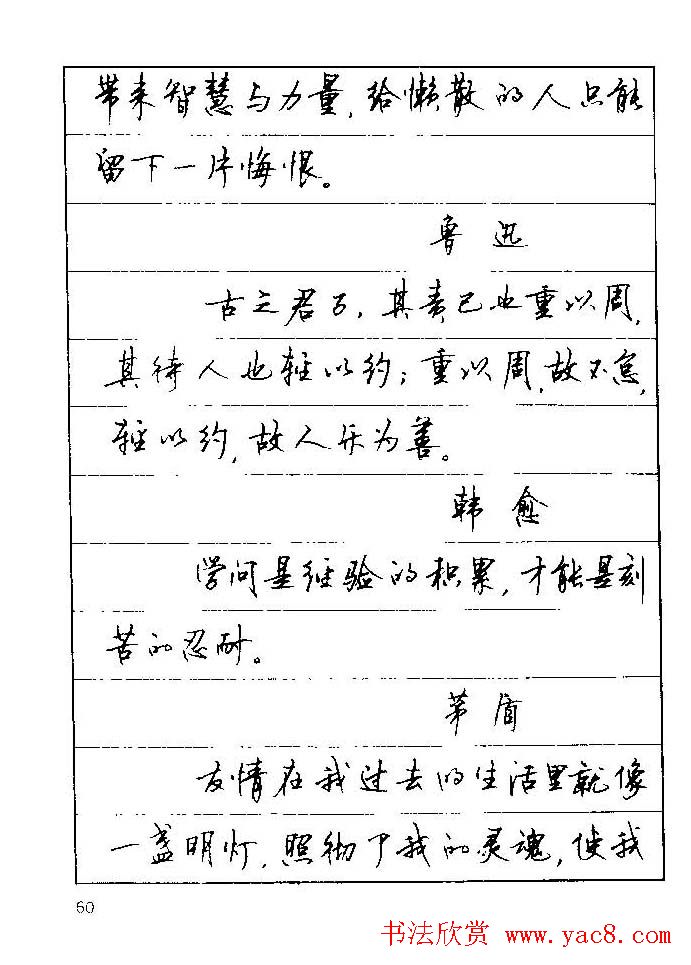 带来智慧与力量，给懒散的人只能
留下一片悔恨。
鲁迅
古之君子，其责己也重以周，
其待人也轻以约；重以周，故不怠，
轻以约，故人乐为善。
韩愈
学问是经验的积累，才能是刻
苦的忍耐。
茅盾
友情在我过去的生活里就像
一盏明灯，照彻了我的灵魂，使我
60
书法欣赏 www.yac8.com